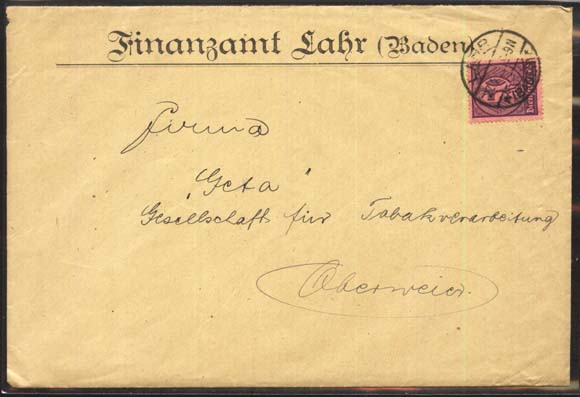 Finanzamt Lahr (Baden)
Firma
"Geta"
Gesellschaft für Tabakverarbeitung
Oberweier.